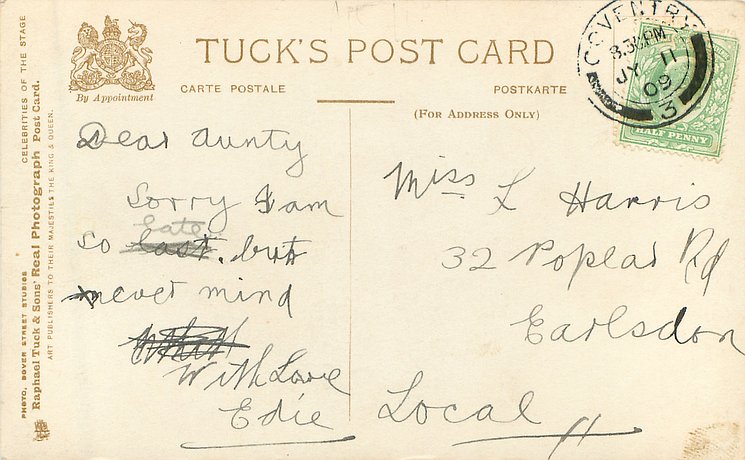 CELEBRITIES OF THE STAGE
PHOTO. DOVER STREET STUDIOS
Raphael Tuck & Sons' Real Photograph Post Card.
ART PUBLISHERS TO THEIR MAJESTIES THE KING & QUEEN.
By Appointment
TUCK'S POST CARD
CARTE POSTALE
POSTKARTE
(FOR ADDRESS ONLY)
COVENTRY
8.30PM
JY 11
09
3
HALF PENNY
Dear Aunty
Sorry I am
Late
so last. but
never mind
With Love
Edie
Miss L Harris
32 Poplar Rd
Earlsdon
Local